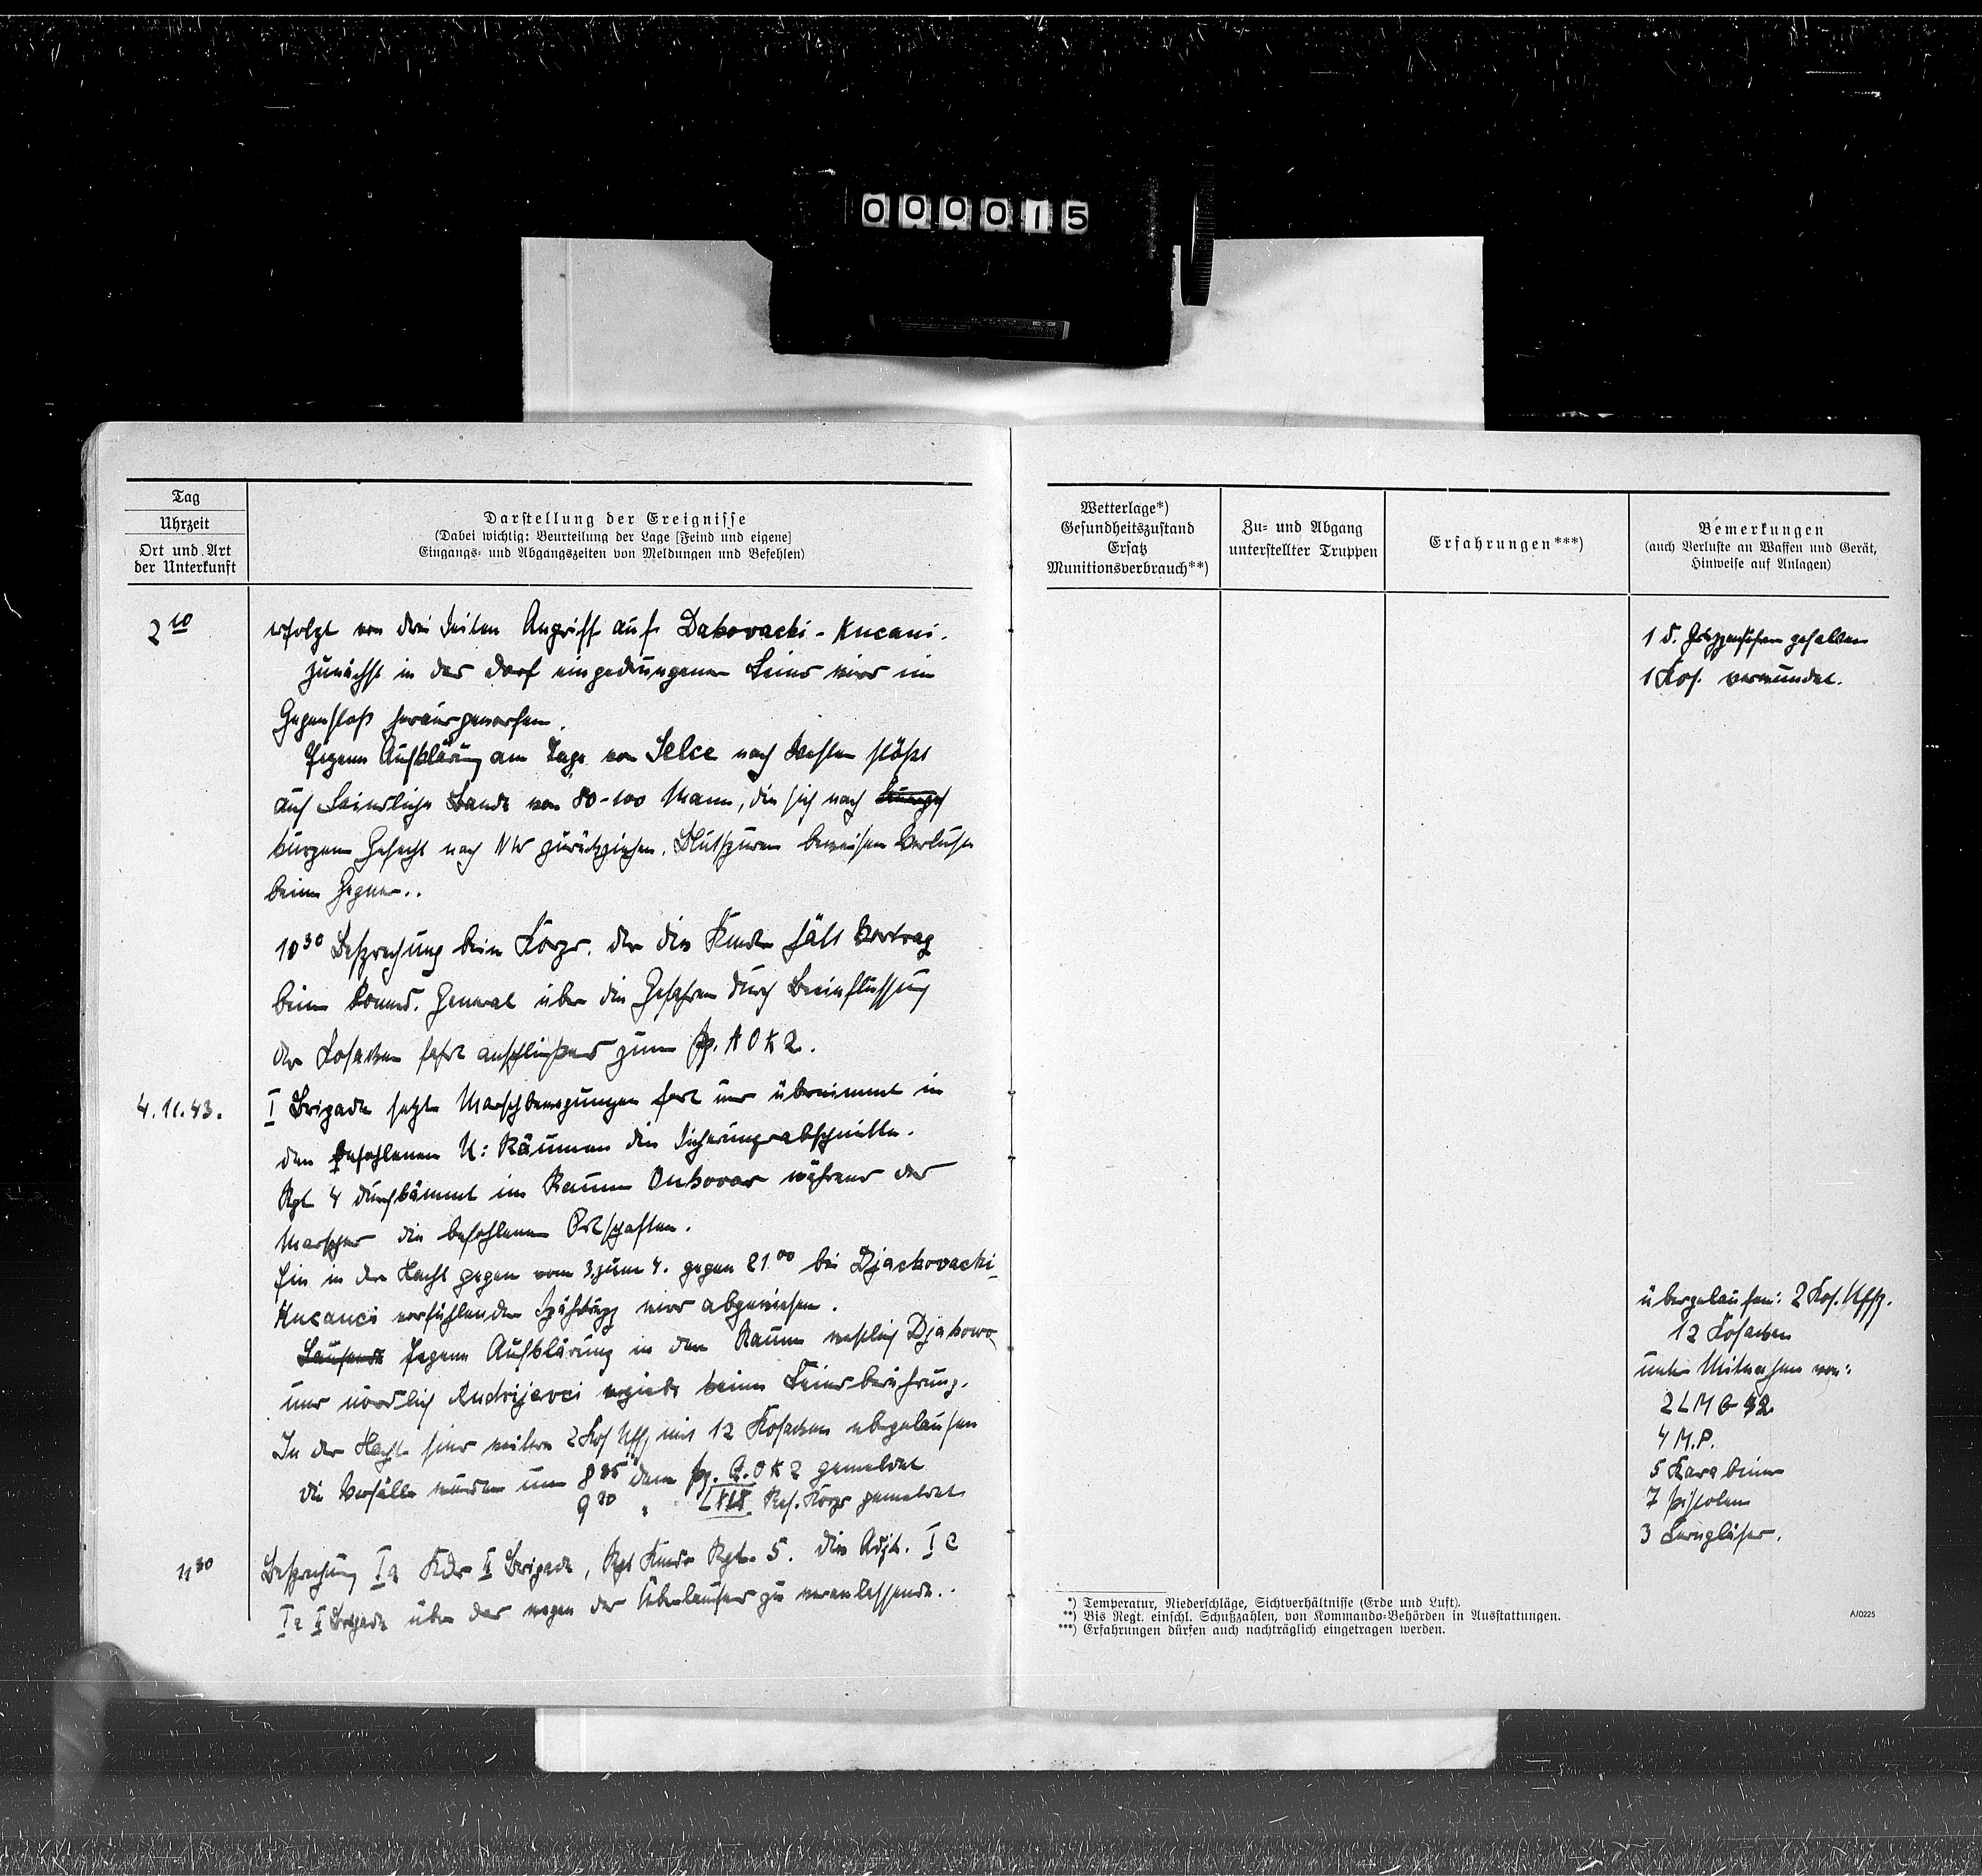 000015
Tag
Uhrzeit
Ort und Art
der Unterkunft
Darstellung der Ereignisse
(Dabei wichtig: Beurteilung der Lage [Feind und eigene]
Eingangs- und Abgangszeiten von Meldungen und Befehlen)
2 10
erfolgt von drei Seiten Angriff auf Dakovacki - Kucani.
Zunächst in das Dorf eingedrungener Feind wird im
Gegenstoß herausgeworfen.
Eigene Aufklärung am Tage von Selce nach Westen stößt
auf feindliche Bande von 80-100 Mann, die sich nach
kurzem Gefecht nach NW zurückziehen. Blutspuren beweisen Verluste
beim Gegner..
10 30 Besprechung beim Korps. der Div Kmdr hält Vortrag
beim Komd. General über die Gefahren durch Beeinflussung
der Kosaken fährt anschließend zum Pz. AOK 2.
4.11.43.
I Brigade setzt Marschbewegungen fort und übernimmt in
den befohlenen U: Räumen die Sicherungsabschnitte.
Rgt 4 durchkämmt im Raum Vukovar während des
Marsches die befohlenen Ortschaften.
Ein in der Nacht gegen vom 3. zum 4. gegen 21 00 bei Djackovacki-
Kucanci vorfühlender Spähtrupp wird abgewiesen.
Eigene Aufklärung in den Raum westlich Djakowo
und nördlich Andrijevci ergiebt keine Feindberührung.
In der Nacht sind weitere 2 Kos Uffz mit 12 Kosaken übergelaufen
die Vorfälle wurden um 8 35 dem Pz. A.OK 2 gemeldet
9 30 " LXIX Res. Korps gemeldet
11 30
Besprechung Ia Kdr II Brigade, Rgt Kmdr Rgt. 5. Div Adjt. Ic
II Brigade über das wegen der Überläufer zu veranlassende..
Wetterlage*)
Gesundheitszustand
Ersatz
Munitionsverbrauch**)
Zu- und Abgang
unterstellter Truppen
Erfahrungen***)
Bemerkungen
(auch Verluste an Waffen und Gerät,
Hinweise auf Anlagen)
1 d. gefallen
1 Kos. verwundet.
übergelaufen: 2 Kos. Uffz.
12 Kosaken
unter Mitnahme von:
2 LMG 42
4 M.P.
5 Karabiner
7 Pistolen
3 Ferngläser.
*) Temperatur, Niederschläge, Sichtverhältnisse (Erde und Luft).
**) Bis Regt. einschl. Schußzahlen, von Kommando-Behörden in Ausstattungen.
***) Erfahrungen dürfen auch nachträglich eingetragen werden.
A/0225